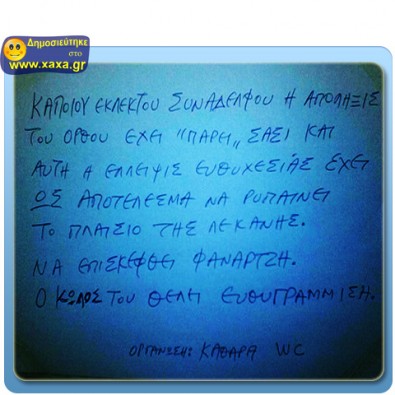 Δημοσιεύτηκε
στο
www.xaxa.gr
ΚΑΠΟΙΟΥ ΕΚΛΕΚΤΟΥ ΣΥΝΑΔΕΛΦΟΥ Η ΑΠΟΛΗΞΙΣ
ΤΟΥ ΟΡΘΟΥ ΕΧΕΙ "ΠΑΡΕΙ„ ΣΑΣΙ ΚΑΙ
ΑΥΤΗ Η ΕΛΛΕΙΨΙΣ ΕΥΘΥΧΕΣΙΑΣ ΕΧΕΙ
ΩΣ ΑΠΟΤΕΛΕΣΜΑ ΝΑ ΡΥΠΑΙΝΕΙ
ΤΟ ΠΛΑΙΣΙΟ ΤΗΣ ΛΕΚΑΝΗΣ.
ΝΑ ΕΠΙΣΚΕΦΘΕΙ ΦΑΝΑΡΤΖΗ.
Ο ΚΩΛΟΣ ΤΟΥ ΘΕΛΕΙ ΕΥΘΥΓΡΑΜΜΙΣΗ.
ΟΡΓΑΝΩΣΗ: ΚΑΘΑΡΑ WC